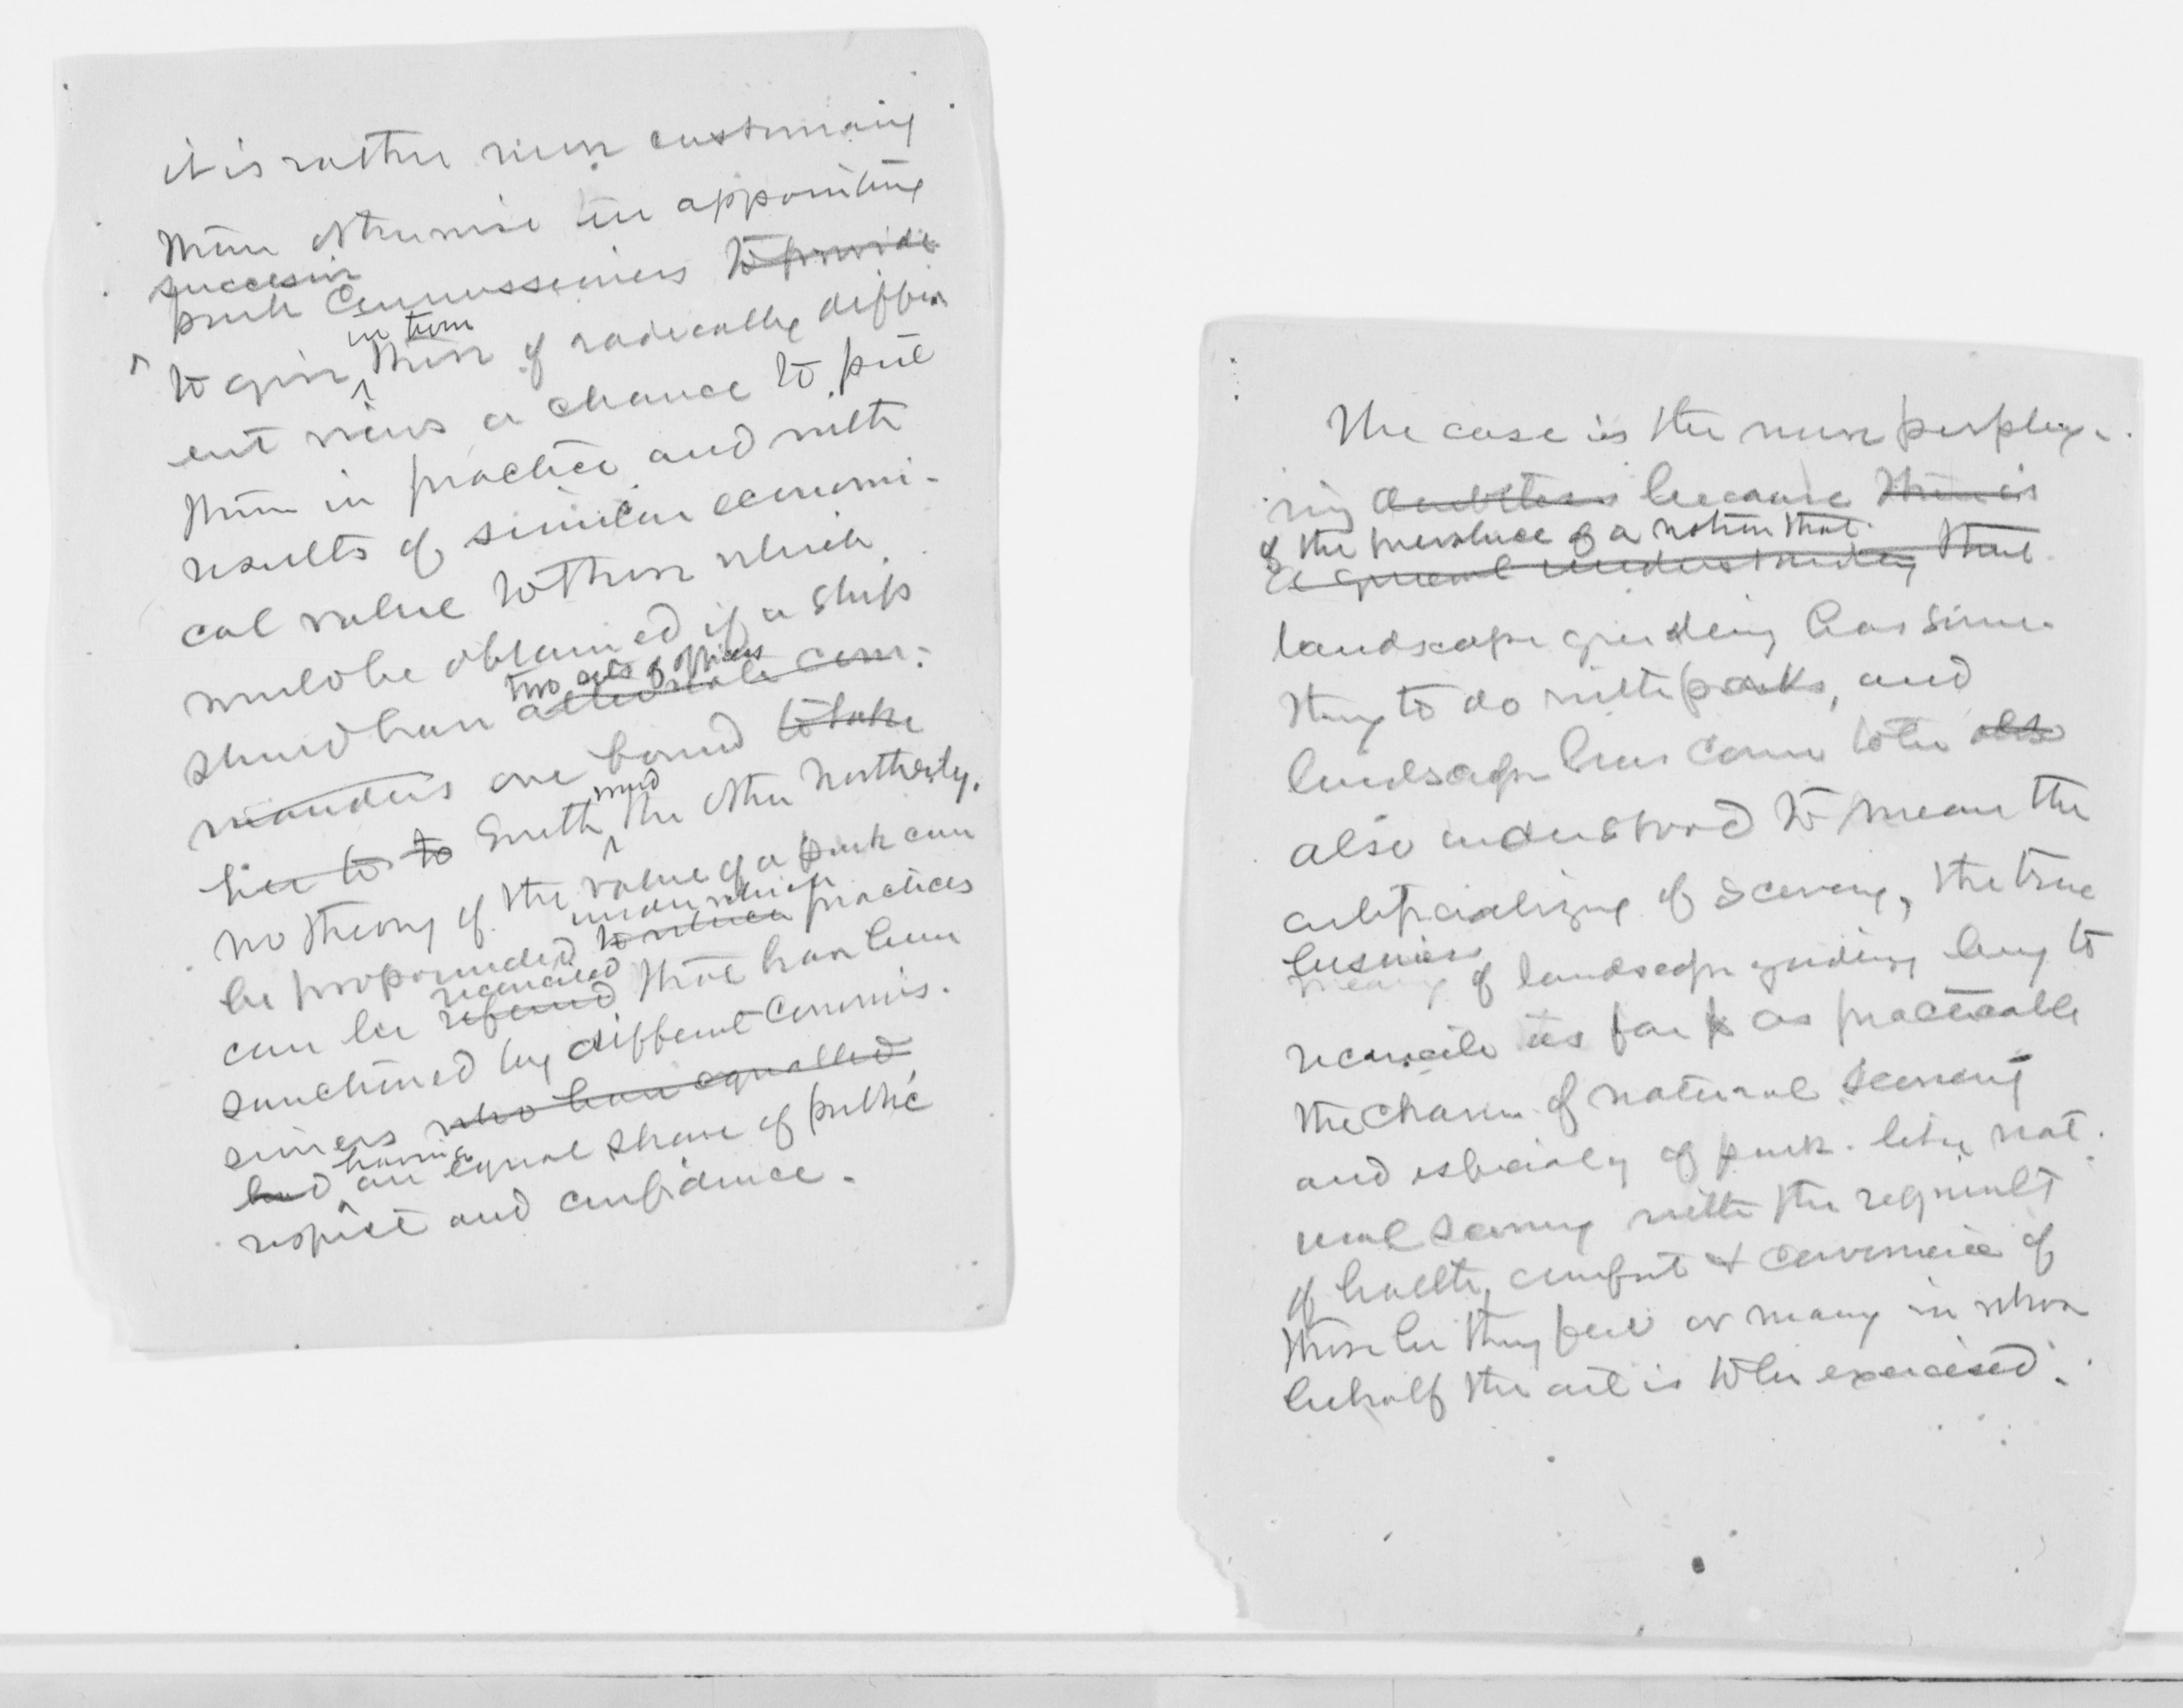 it is rather more customary
than otherwise in appointing
successive
park Commissioners to provide
in turn
to give ^ those of radically differ
ent views a chance to put
them in practice and with
results of similar economi-
cal value to those which
would be obtained if a ship
two sets of officers
should have alternate com-
manders one bound to take
wd
her to to South ^ the other northerly.
no theory of the value of a park can
under which
be propounded to which practices
reconciled
can be referred that have been
sanctioned by different Commis-
sioners who have equalled
having
had ^ an equal share of public
respect and confidence.
The case is the more perplex-
ing doubtless because there is
of the prevalence of a notion that
a general understanding that
landscape gardening has some-
thing to do with parks, and
landscape has come to be also
also understood to mean the
artificializing of scenery, the true
business
of landscape gardening being to
reconcile as far as practicable
the charm of natural scenery
and especially of park-like nat-
ural scenery with the requirements
of health, comfort & convenience of
those be they few or many in whose
behalf the art is to be exercised.